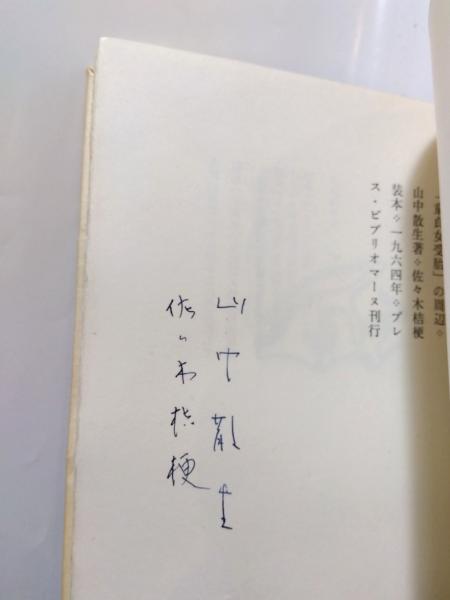 「童貞女受胎」の周辺❖
山中散生著❖佐々木桔梗
装本❖一九六四年❖プレ
ス・ビブリオマーヌ刊行
山中散生
佐々木桔梗